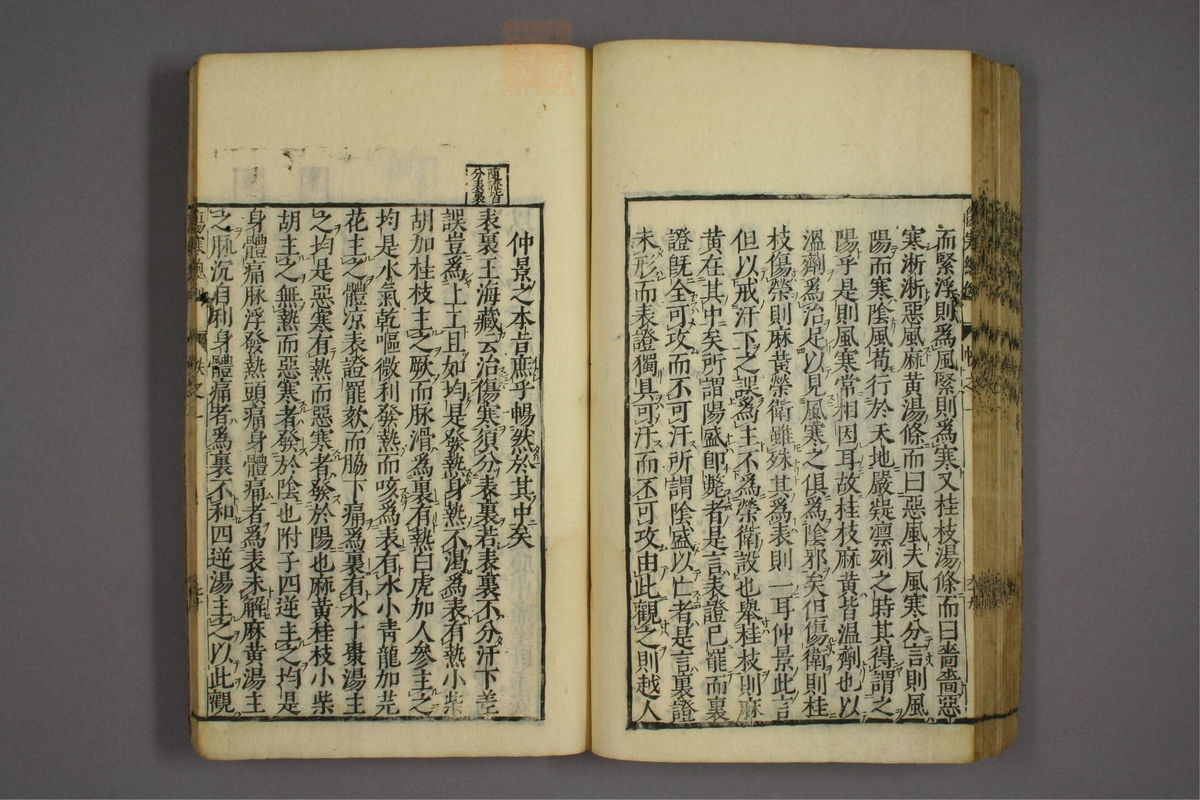 而緊浮則爲風緊則爲寒又桂枝湯條而曰嗇嗇惡
寒淅淅惡風麻黃湯條而曰惡風夫風寒分言則風
陽而寒陰風苟行於天地嚴凝凛冽之時其得謂之
陽乎是則風寒常相因耳故桂枝麻黃皆溫劑也以
溫劑爲治足以見風寒之俱爲陰邪矣但傷衛則桂
枝傷榮則麻黃榮衛雖殊其爲表則一耳仲景此言
但以戒汗下之誤爲主不爲榮衛設也舉桂枝則麻
黃在其中矣所謂陽盛即斃者是言表證已罷而裏
證旣全可攻而不可汗所謂陰盛以亡者是言裏證
未形而表證獨具可汗而不可攻由此觀之則越人
仲景之本旨庶乎暢然於其中矣
隨證皆
分表裏
表裏王海藏云治傷寒須分表裏若表裏不分汗下差
誤豈爲上工且如均是發熱身熱不渴爲表有熱小柴
胡加桂枝主之厥而脉滑爲裏有熱白虎加人參主之
均是水氣乾嘔微利發熱而咳爲表有水小青龍加芫
花主之體凉表證罷欬而脇下痛爲裏有水十棗湯主
之均是惡寒有熱而惡寒者發於陽也麻黃桂枝小柴
胡主之無熱而惡寒者發於陰也附子四逆主之均是
身體痛脉浮發熱頭痛身體痛者爲表未解麻黃湯主
之脉沉自利身體痛者爲裏不和四逆湯主之以此觀